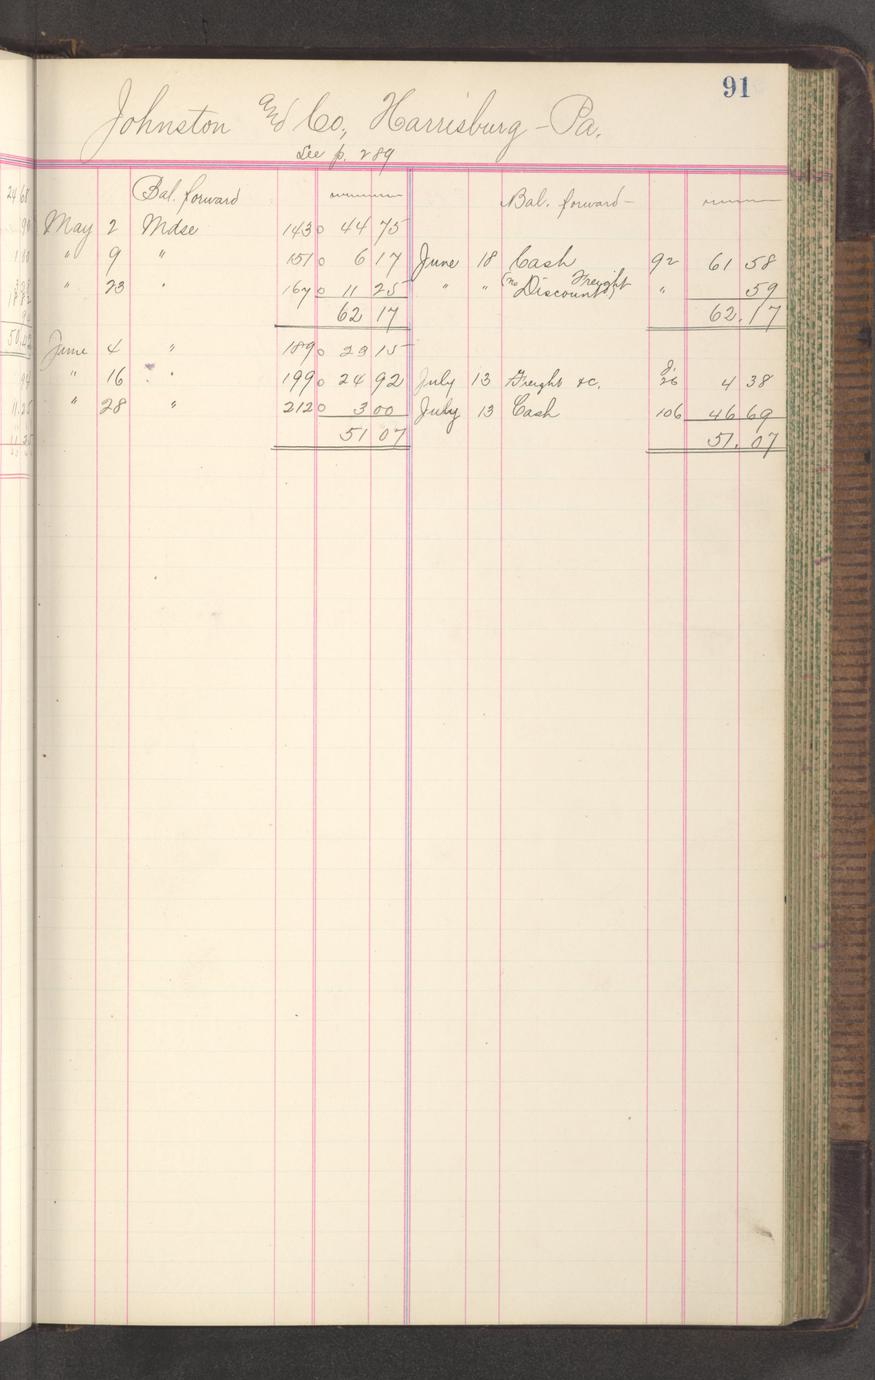 91
Johnston and Co., Harrisburg - Pa.
See p. 289
Bal. forward
May 2 Mdse 143 0 44 75
" 9 " 151 0 6 17
" 23 " 167 0 11 25
62 17
June 4 " 189 0 29 15
" 16 " 199 0 24 92
" 28 " 212 0 3 00
51 07
Bal. forward -
June 18 Cash 92 61 58
" " (no Freight Discount) " 59
62.17
July 13 Freight &c. J. 26 4 38
July 13 Cash 106 46 69
51.07